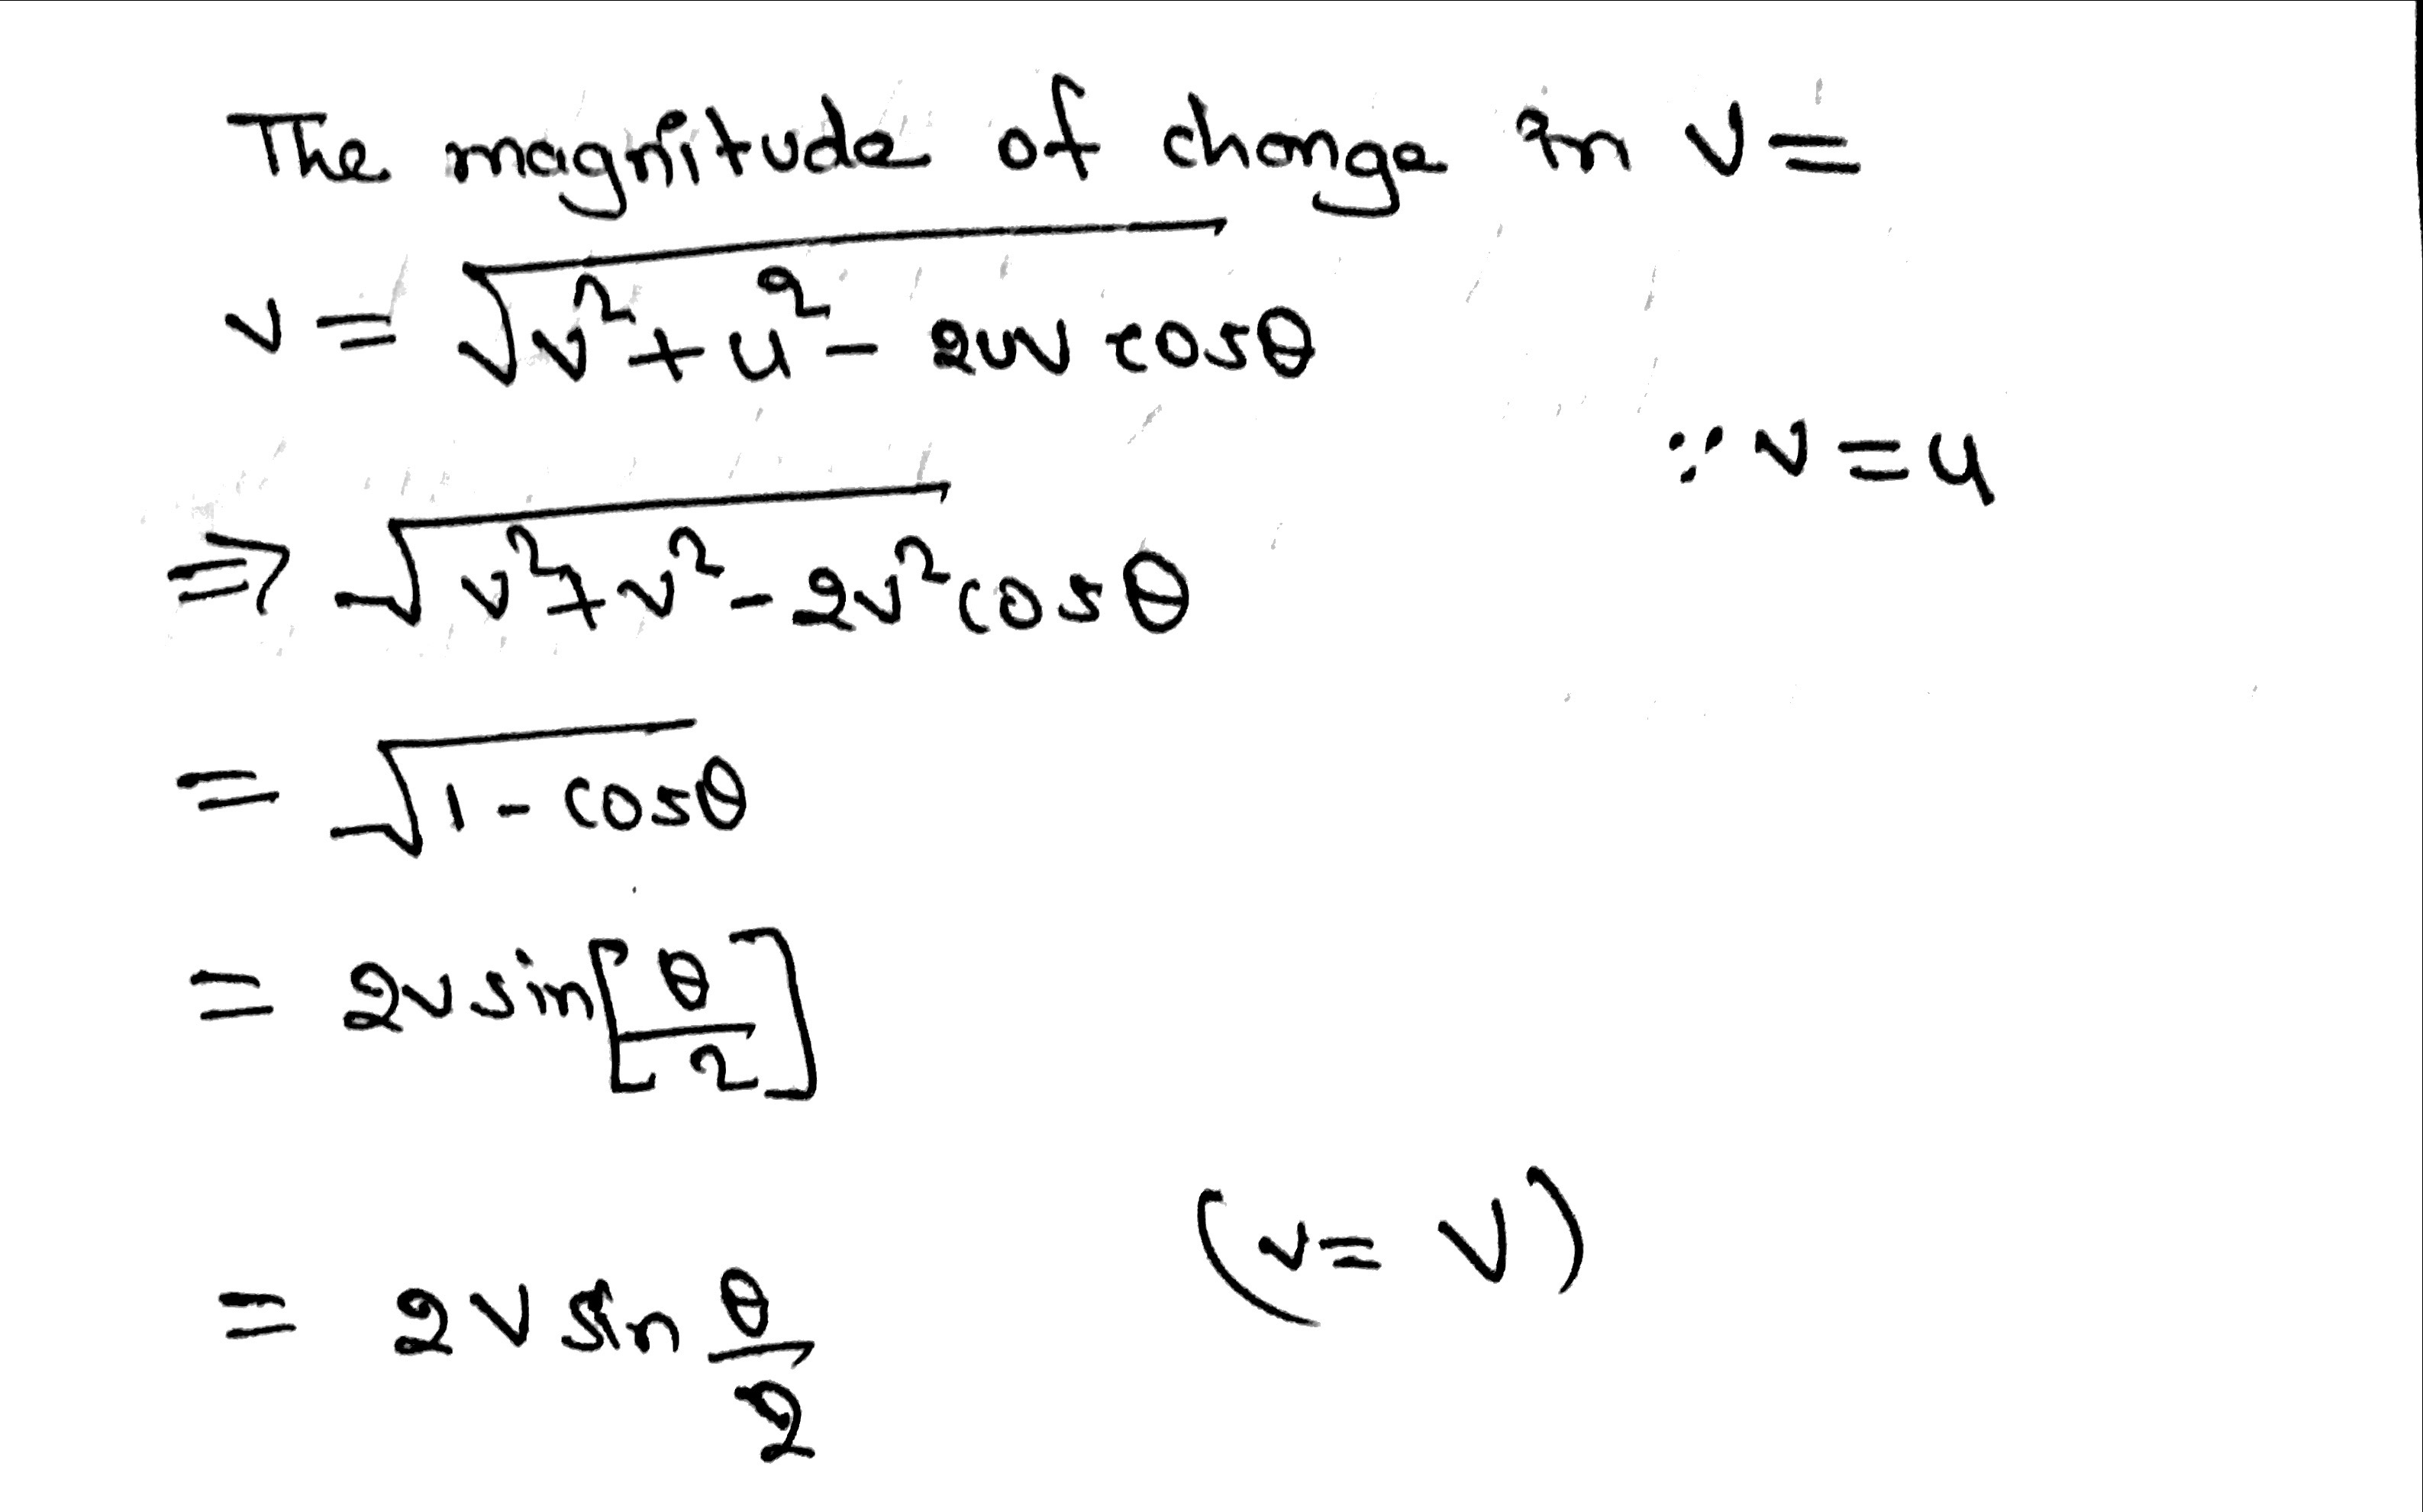 The magnitude of change in V =
v = √v²+u² - 2uv cosθ
∵ v = u
⇒ √v²+v² - 2v²cosθ
= √1 - cosθ
= 2v sin[θ/2]
(v = V)
= 2V sin θ/2